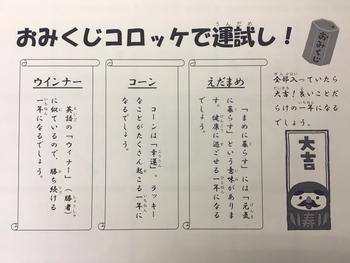 おみくじコロッケで運試し！
おみくじ
全部入っていたら
大吉！良いことだ
らけの一年になる
でしょう。
えだまめ
「まめに暮らす」には「元気
に暮らす」という意味がありま
す。健康に過ごせる一年になる
でしょう。
コーン
コーンは「幸運」。ラッキー
なことがたくさん起こる一年に
なるでしょう。
ウインナー
英語の「ウイナー」（勝者）
に似ているので、勝ち続ける
一年になるでしょう。
大吉
寿